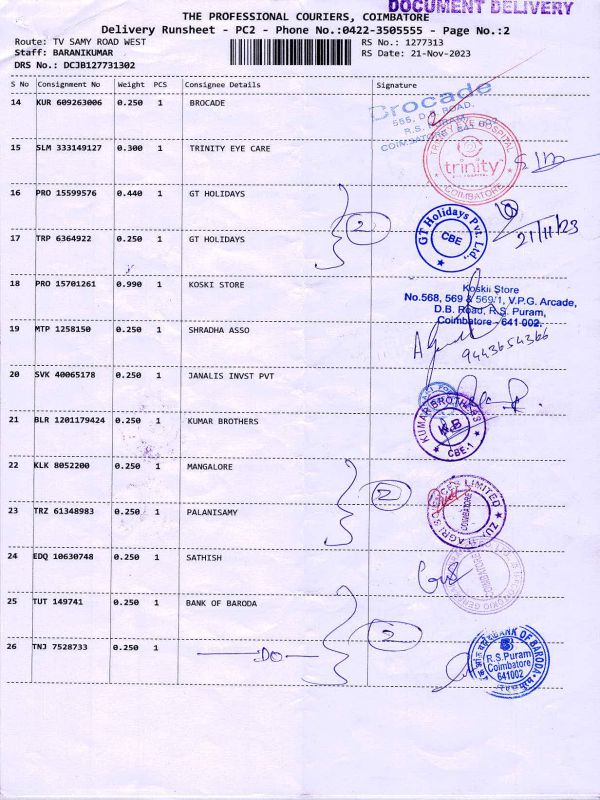 DOCUMENT DELIVERY
THE PROFESSIONAL COURIERS, COIMBATORE
Delivery Runsheet - PC2 - Phone No.:0422-3505555 - Page No.:2
Route: TV SAMY ROAD WEST RS No.: 1277313
Staff: BARANIKUMAR RS Date: 21-Nov-2023
DRS No.: DCJB127731302
S No Consignment No Weight PCS Consignee Details Signature
14 KUR 609263006 0.250 1 BROCADE
Brocade
R.S. PURAM,
15 SLM 333149127 0.300 1 TRINITY EYE CARE
TRINITY EYE HOSPITAL
trinity
COIMBATORE
16 PRO 15599576 0.440 1 GT HOLIDAYS
2
GT Holidays Pvt. Ltd.,
CBE
21/11/23
17 TRP 6364922 0.250 1 GT HOLIDAYS
18 PRO 15701261 0.990 1 KOSKI STORE
Koskii Store
No.568, 569 & 569/1, V.P.G. Arcade,
D.B. Road, R.S. Puram,
Coimbatore - 641 002.
19 MTP 1258150 0.250 1 SHRADHA ASSO
9443654366
20 SVK 40065178 0.250 1 JANALIS INVST PVT
21 BLR 1201179424 0.250 1 KUMAR BROTHERS
KUMAR BROTHERS
K.B
CBE-1
22 KLK 8052200 0.250 1 MANGALORE
2
LIMITED
COIMBATORE
23 TRZ 61348983 0.250 1 PALANISAMY
24 EDQ 10630748 0.250 1 SATHISH
25 TUT 149741 0.250 1 BANK OF BARODA
2
BANK OF BARODA
R.S.Puram
Coimbatore
641002
26 TNJ 7528733 0.250 1 DO